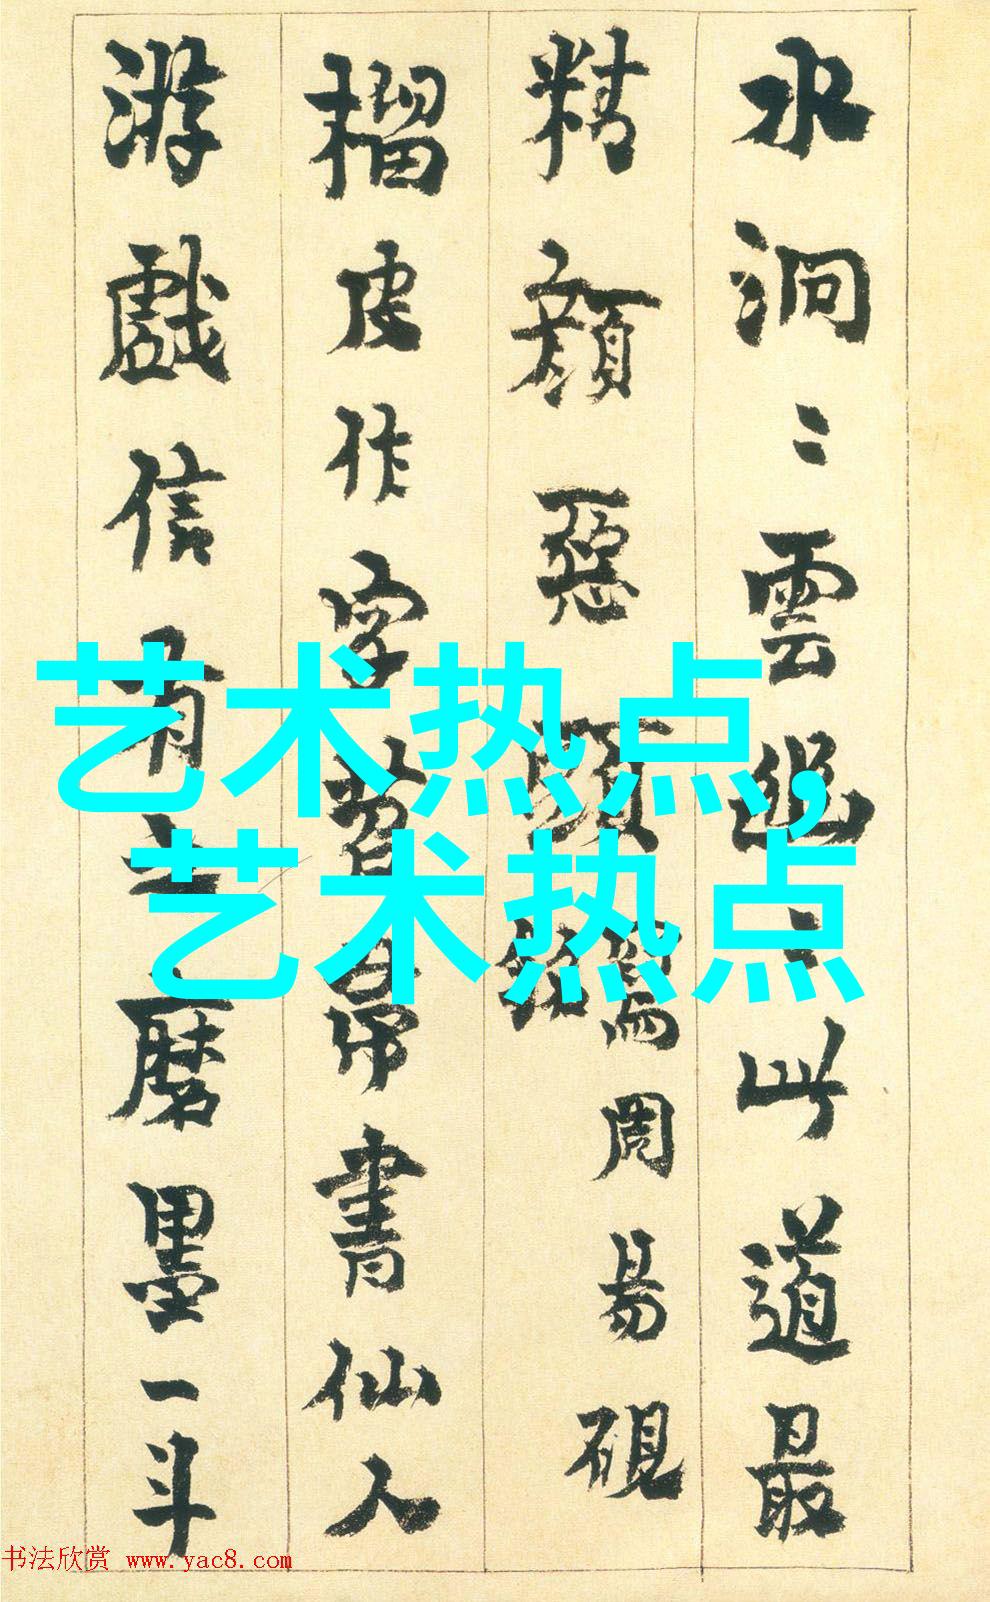 水洞〻雲幽〻此道最
精顏惡
寫周易硯
榴皮作字苕帚書仙人
游戲信有之磨墨一斗
艺术热点,
艺术热点
书法欣赏 www.yac8.com